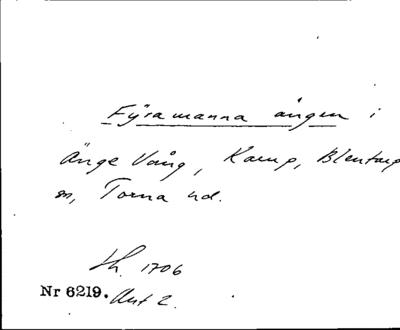 Fÿramanna ängen i
Änge Vång, Karup, Blentarp
sn, Torna hd.
Lh. 1706
Nr 6219. Akt 2.